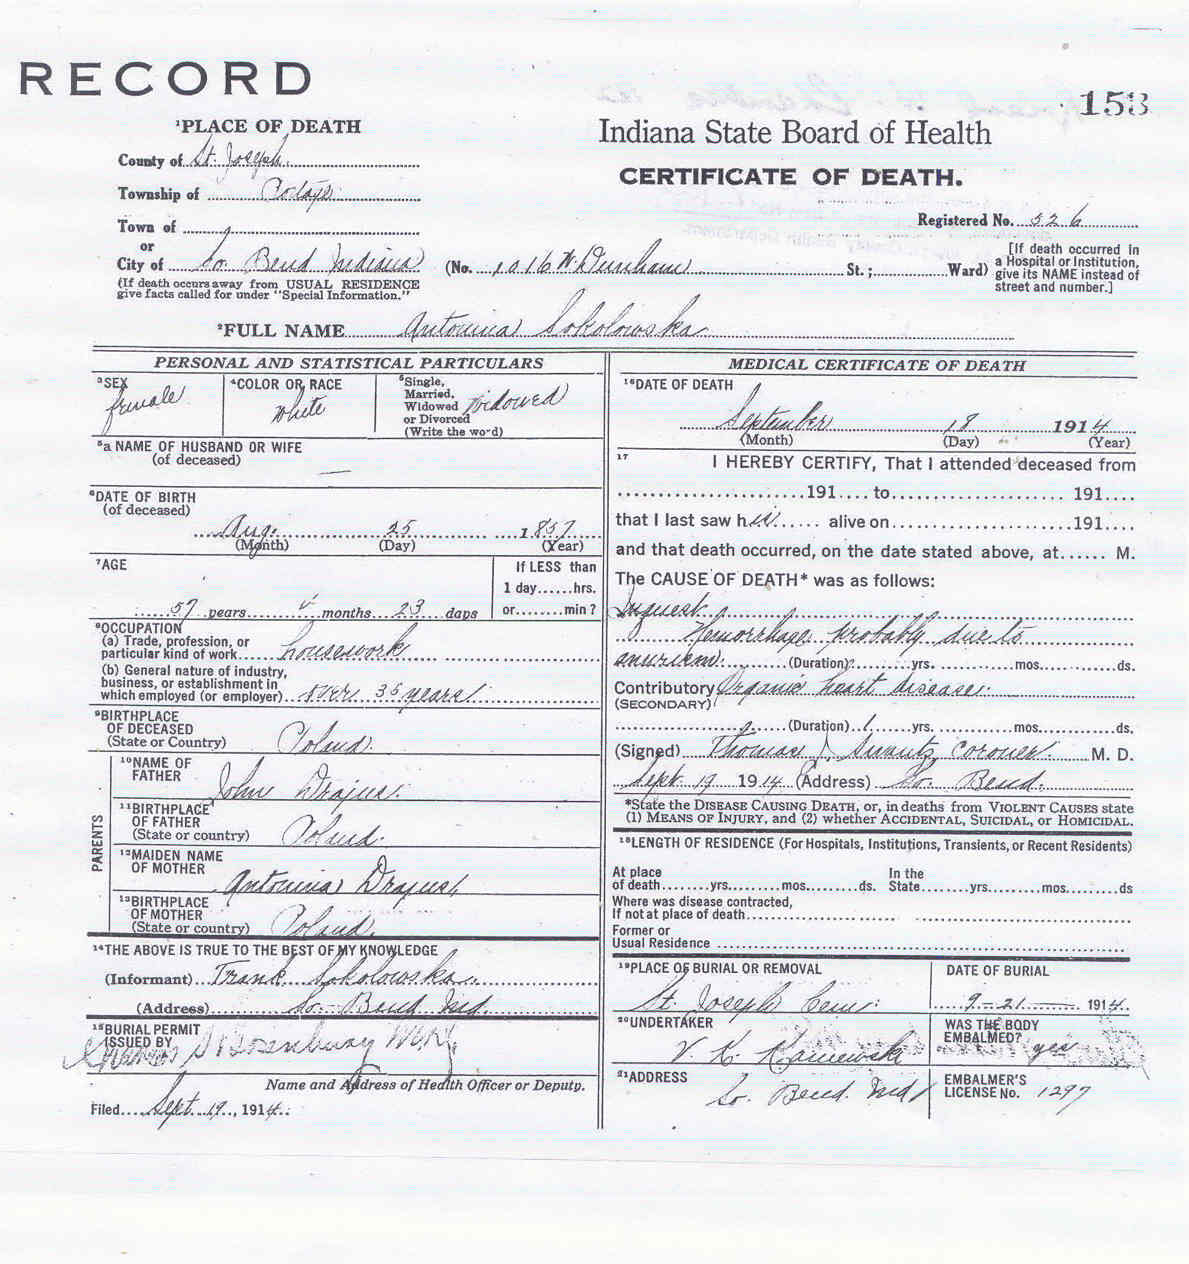 RECORD
153
Indiana State Board of Health
CERTIFICATE OF DEATH.
Registered No. 326
¹PLACE OF DEATH
County of St. Joseph
Township of Portage
Town of
or
City of So. Bend Indiana (No. 1016 W. Dunham St.; Ward)
(If death occurs away from USUAL RESIDENCE
give facts called for under "Special Information."
[If death occurred in
a Hospital or Institution,
give its NAME instead of
street and number.]
²FULL NAME Antonina Sokolowska
PERSONAL AND STATISTICAL PARTICULARS
³SEX
female
⁴COLOR OR RACE
White
⁵Single,
Married,
Widowed
or Divorced
(Write the word)
Widowed
⁵a NAME OF HUSBAND OR WIFE
(of deceased)
—
⁶DATE OF BIRTH
(of deceased)
Aug. 25 1857
(Month) (Day) (Year)
⁷AGE
57 years months 23 days
If LESS than
1 day......hrs.
or........min?
⁸OCCUPATION
(a) Trade, profession, or
particular kind of work housework
(b) General nature of industry,
business, or establishment in
which employed (or employer) over 35 years
⁹BIRTHPLACE
OF DECEASED
(State or Country) Poland
PARENTS
¹⁰NAME OF
FATHER John Drajus
¹¹BIRTHPLACE
OF FATHER
(State or country) Poland
¹²MAIDEN NAME
OF MOTHER Antonina Drajus
¹³BIRTHPLACE
OF MOTHER
(State or country) Poland
¹⁴THE ABOVE IS TRUE TO THE BEST OF MY KNOWLEDGE
(Informant) Frank Sokolowska
(Address) So. Bend Ind.
¹⁵BURIAL PERMIT
ISSUED BY
Name and Address of Health Officer or Deputy.
Filed Sept. 19, 1914
MEDICAL CERTIFICATE OF DEATH
¹⁶DATE OF DEATH
September 18 1914
(Month) (Day) (Year)
¹⁷ I HEREBY CERTIFY, That I attended deceased from
191.... to 191....
that I last saw her alive on 191....
and that death occurred, on the date stated above, at...... M.
The CAUSE OF DEATH* was as follows:
Inquest
Hemorrhage probably due to
anurism (Duration) yrs. mos. ds.
Contributory Organic heart disease
(SECONDARY)
(Duration) 1 yrs. mos. ds.
(Signed) Thomas J. Swantz Coroner M. D.
Sept. 19 1914 (Address) So. Bend.
*State the DISEASE CAUSING DEATH, or, in deaths from VIOLENT CAUSES state
(1) MEANS OF INJURY, and (2) whether ACCIDENTAL, SUICIDAL, or HOMICIDAL.
¹⁸LENGTH OF RESIDENCE (For Hospitals, Institutions, Transients, or Recent Residents)
At place
of death yrs. mos. ds.
In the
State yrs. mos. ds
Where was disease contracted,
If not at place of death
Former or
Usual Residence
¹⁹PLACE OF BURIAL OR REMOVAL
St. Joseph Cem.
DATE OF BURIAL
9-21- 1914
²⁰UNDERTAKER
V. K. Kaniewski
WAS THE BODY
EMBALMED? yes
²¹ADDRESS
So. Bend. Ind
EMBALMER'S
LICENSE No. 1297